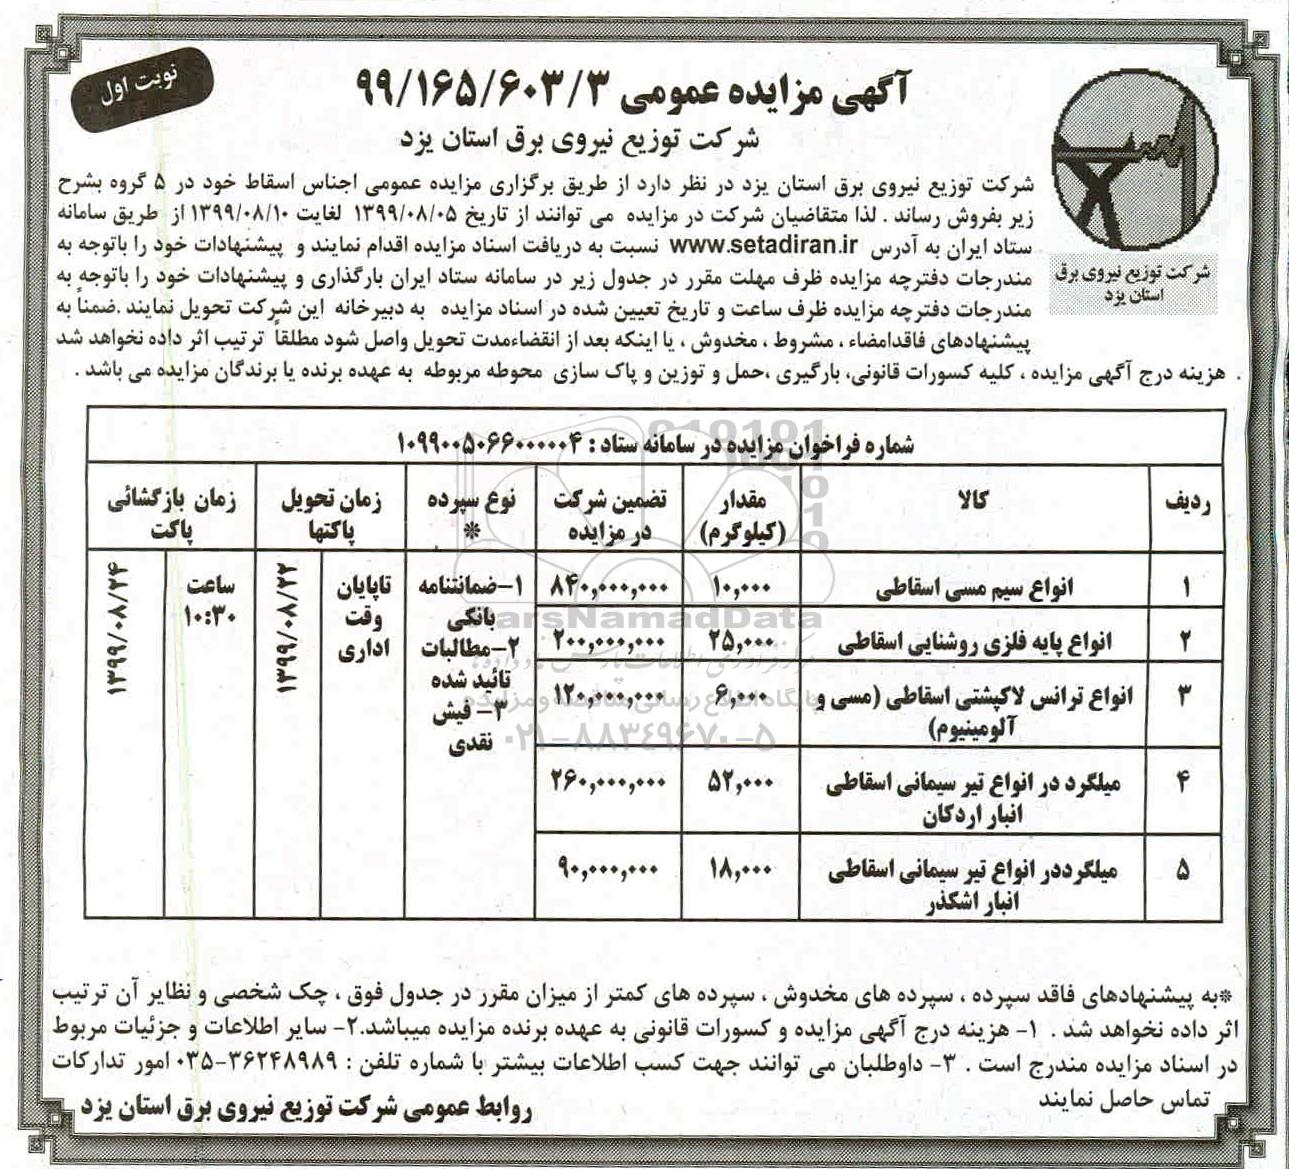 نوبت اول
آگهی مزایده عمومی ۹۹/۱۶۵/۶۰۳/۳
شرکت توزیع نیروی برق استان یزد
شرکت توزیع نیروی برق
استان یزد
شرکت توزیع نیروی برق استان یزد در نظر دارد از طریق برگزاری مزایده عمومی اجناس اسقاط خود در ۵ گروه بشرح
زیر بفروش رساند . لذا متقاضیان شرکت در مزایده می توانند از تاریخ ۱۳۹۹/۰۸/۰۵ لغایت ۱۳۹۹/۰۸/۱۰ از طریق سامانه
ستاد ایران به آدرس www.setadiran.ir نسبت به دریافت اسناد مزایده اقدام نمایند و پیشنهادات خود را باتوجه به
مندرجات دفترچه مزایده ظرف مهلت مقرر در جدول زیر در سامانه ستاد ایران بارگذاری و پیشنهادات خود را باتوجه به
مندرجات دفترچه مزایده ظرف ساعت و تاریخ تعیین شده در اسناد مزایده به دبیرخانه این شرکت تحویل نمایند .ضمناً به
پیشنهادهای فاقدامضاء ، مشروط ، مخدوش ، یا اینکه بعد از انقضاءمدت تحویل واصل شود مطلقاً ترتیب اثر داده نخواهد شد
. هزینه درج آگهی مزایده ، کلیه کسورات قانونی، بارگیری ،حمل و توزین و پاک سازی محوطه مربوطه به عهده برنده یا برندگان مزایده می باشد .
شماره فراخوان مزایده در سامانه ستاد : ۱۰۹۹۰۰۵۰۶۶۰۰۰۰۰۴
ردیف کالا مقدار (کیلوگرم) تضمین شرکت در مزایده نوع سپرده * زمان تحویل پاکتها زمان بازگشائی پاکت
۱ انواع سیم مسی اسقاطی ۱۰,۰۰۰ ۸۴۰,۰۰۰,۰۰۰
۲ انواع پایه فلزی روشنایی اسقاطی ۲۵,۰۰۰ ۲۰۰,۰۰۰,۰۰۰
۳ انواع ترانس لاکپشتی اسقاطی (مسی و آلومینیوم) ۶,۰۰۰ ۱۲۰,۰۰۰,۰۰۰
۴ میلگرد در انواع تیر سیمانی اسقاطی انبار اردکان ۵۲,۰۰۰ ۲۶۰,۰۰۰,۰۰۰
۵ میلگرددر انواع تیر سیمانی اسقاطی انبار اشکذر ۱۸,۰۰۰ ۹۰,۰۰۰,۰۰۰
۱-ضمانتنامه
بانکی
۲-مطالبات
تائید شده
۳- فیش
نقدی
تاپایان
وقت
اداری
۱۳۹۹/۰۸/۲۲
ساعت
۱۰:۳۰
۱۳۹۹/۰۸/۲۴
ParsNamadData
پایگاه اطلاع رسانی مناقصه و مزایده
۰۲۱-۸۸۳۴۹۶۷۰-۵
*به پیشنهادهای فاقد سپرده ، سپرده های مخدوش ، سپرده های کمتر از میزان مقرر در جدول فوق ، چک شخصی و نظایر آن ترتیب
اثر داده نخواهد شد . ۱- هزینه درج آگهی مزایده و کسورات قانونی به عهده برنده مزایده میباشد.۲- سایر اطلاعات و جزئیات مربوط
در اسناد مزایده مندرج است . ۳- داوطلبان می توانند جهت کسب اطلاعات بیشتر با شماره تلفن : ۳۶۲۴۸۹۸۹-۰۳۵ امور تدارکات
تماس حاصل نمایند
روابط عمومی شرکت توزیع نیروی برق استان یزد